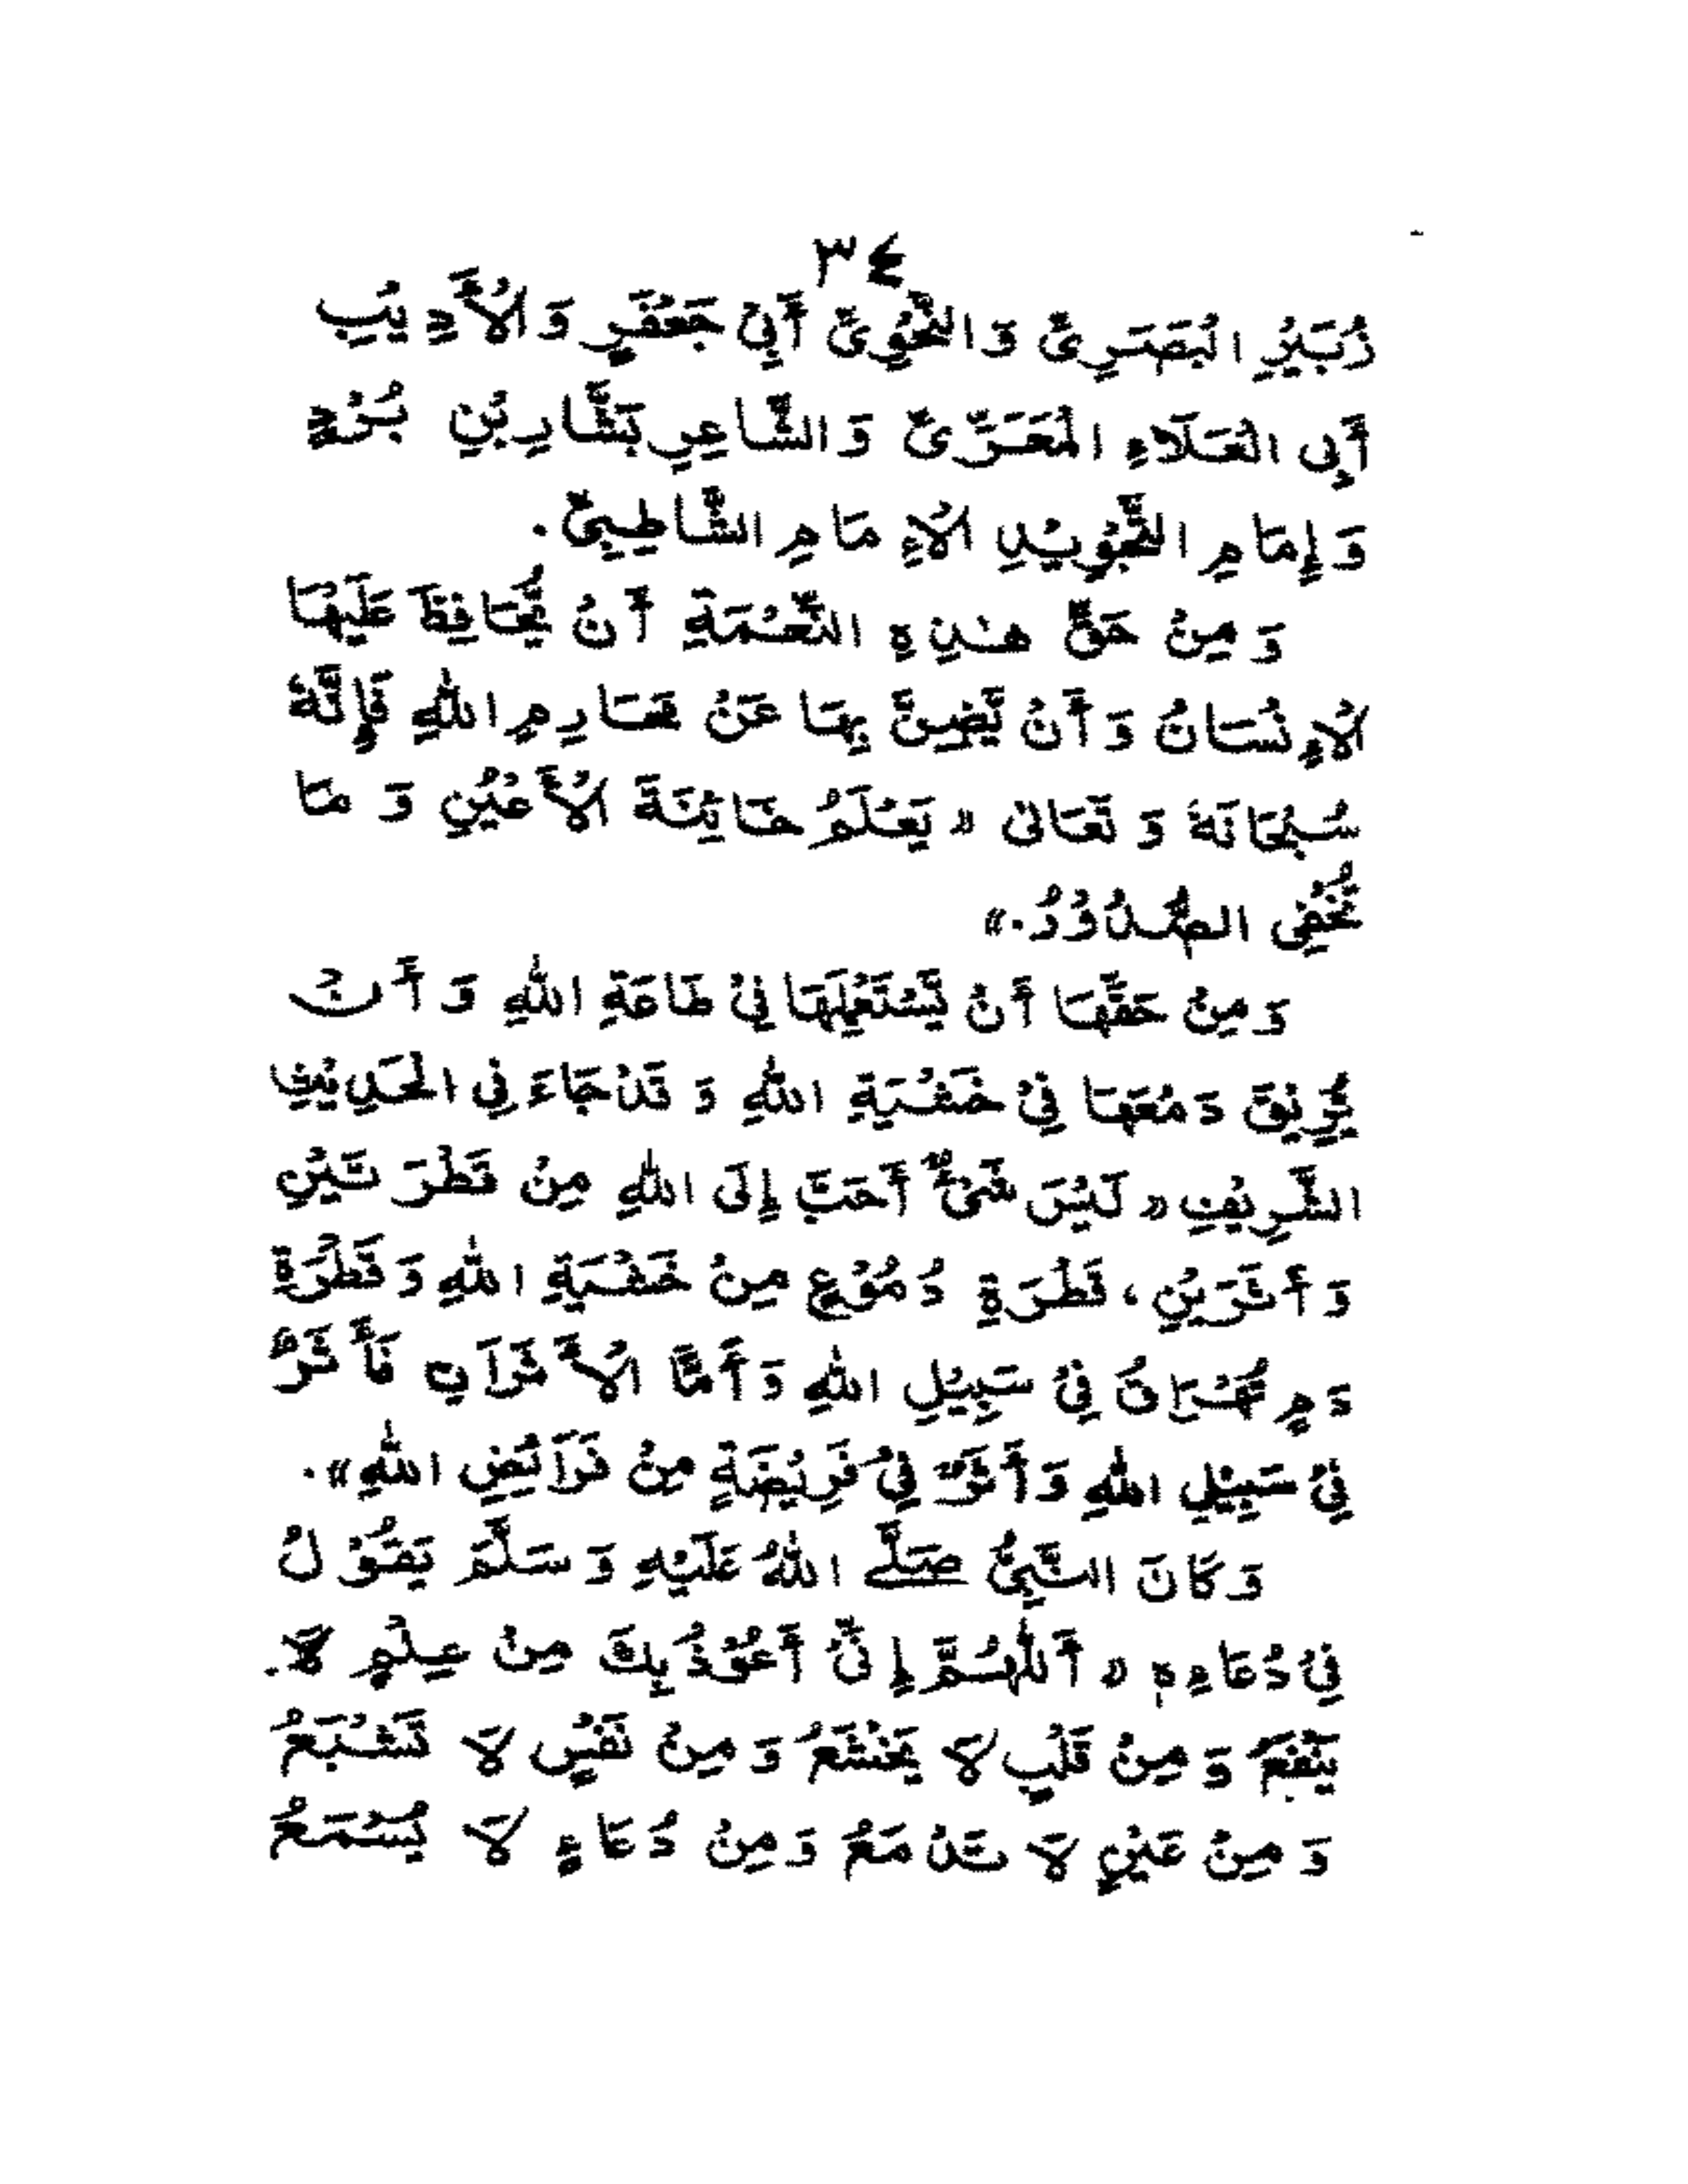 ٣٤
زُبَيْرِ الْبَصَرِیِّ وَالنَّحْوِیِّ أَبِیْ جَعْفَرٍ وَ الْأَدِيْبِ
أَبِی الْعَلَاءِ الْمَعَرِّیِّ وَ الشَّاعِرِ بَشَّارِ بْنِ بُرْدٍ
وَ إِمَامِ التَّجْوِيْدِ الْإِمَامِ الشَّاطِبِیِّ.
وَ مِنْ حَقِّ هٰذِهِ النِّعْمَةِ أَنْ يُّحَافِظَ عَلَيْهَا
الْإِنْسَانُ وَ أَنْ يَّضِنَّ بِهَا عَنْ مَحَارِمِ اللّٰهِ فَإِنَّهُ
سُبْحَانَهُ وَ تَعَالٰی «يَعْلَمُ خَائِنَةَ الْأَعْيُنِ وَ مَا
تُخْفِی الصُّدُوْرُ.»
وَ مِنْ حَقِّهَا أَنْ يَّسْتَعْمِلَهَا فِیْ طَاعَةِ اللّٰهِ وَ أَنْ
يُّرِيْقَ دَمْعَهَا فِیْ خَشْيَةِ اللّٰهِ وَ قَدْ جَاءَ فِی الْحَدِيْثِ
الشَّرِيْفِ «لَيْسَ شَیْءٌ أَحَبَّ إِلَی اللّٰهِ مِنْ قَطْرَتَيْنِ
وَ أَثَرَيْنِ، قَطْرَةِ دُمُوْعٍ مِنْ خَشْيَةِ اللّٰهِ وَ قَطْرَةِ
دَمٍ تُهْرَاقُ فِیْ سَبِيْلِ اللّٰهِ وَ أَمَّا الْأَثَرَانِ فَأَثَرٌ
فِیْ سَبِيْلِ اللّٰهِ وَ أَثَرٌ فِیْ فَرِيْضَةٍ مِنْ فَرَائِضِ اللّٰهِ».
وَ كَانَ النَّبِیُّ صَلَّى اللّٰهُ عَلَيْهِ وَ سَلَّمَ يَقُوْلُ
فِیْ دُعَاءِهٖ «أَللّٰهُمَّ إِنِّیْ أَعُوْذُ بِكَ مِنْ عِلْمٍ لَا
يَنْفَعُ وَ مِنْ قَلْبٍ لَا يَخْشَعُ وَ مِنْ نَفْسٍ لَا تَشْبَعُ
وَ مِنْ عَيْنٍ لَا تَدْمَعُ وَ مِنْ دُعَاءٍ لَا يُسْمَعُ